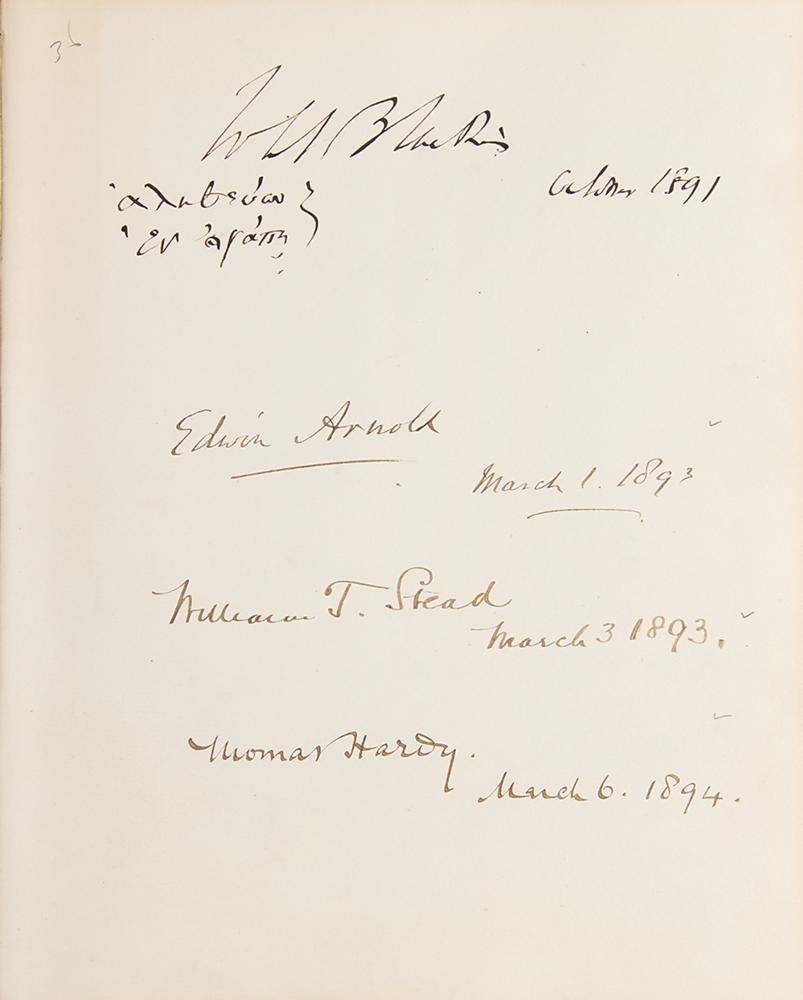 Blackie
October 1891
ἀληθεύων }
ἐν ἀγάπῃ
Edwin Arnold
March 1. 1893
William T. Stead
March 3 1893.
Thomas Hardy.
March 6. 1894.